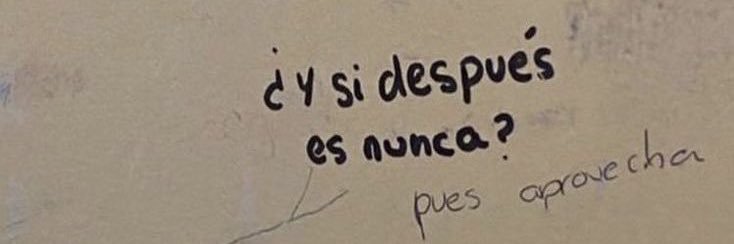 ¿Y si después
es nunca?
pues aprovecha